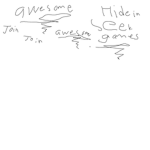 awesome
Hide in
Join
Join
awesome
games